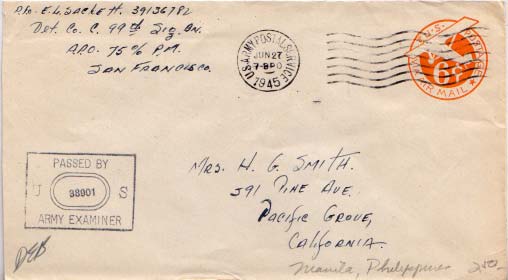 Pfc. E. L. Sackett. 39136782
Det. Co. C. 99th Sig. Bn.
A.P.O. 75 % P.M.
San Francisco.
U.S. ARMY POSTAL SERVICE
JUN 27
7-8PM
1945
A.P.O.
U.S. POSTAGE
6¢
VIA AIR MAIL
PASSED BY
U 38901 S
ARMY EXAMINER
Mrs. H. G. Smith.
591 Pine Ave.
Pacific Grove,
California.
Manila, Philippines 2.50